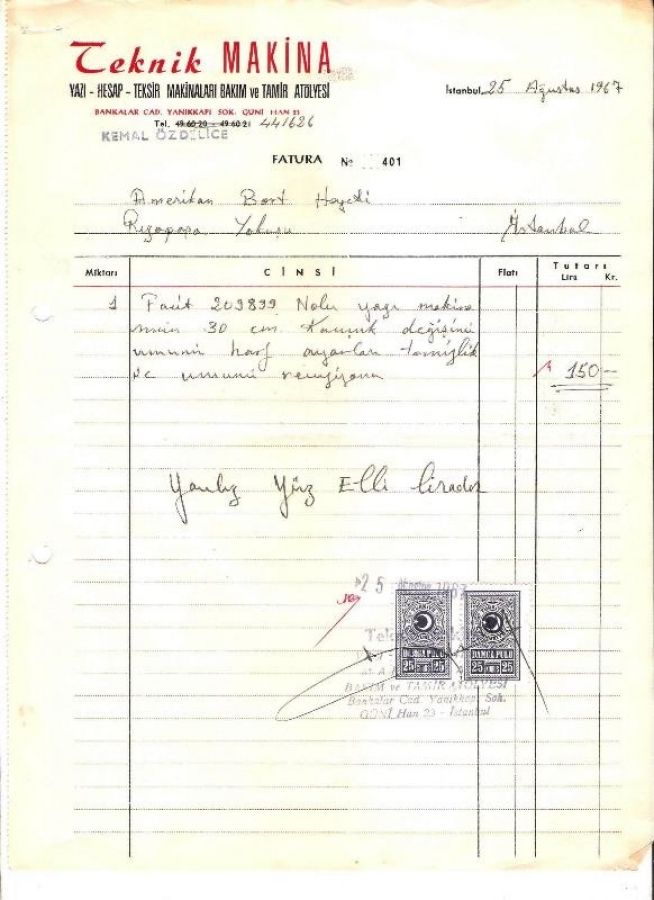 Teknik MAKİNA
YAZI - HESAP - TEKSİR MAKİNALARI BAKIM ve TAMİR ATÖLYESİ
İstanbul, 25 Ağustos 1967
BANKALAR CAD. YANIKKAPI SOK. GÜNİ HAN 23
Tel. 49 60 20 - 49 60 21 441626
KEMAL ÖZDİLİCE
FATURA № 401
Amerikan Bort Heyeti
Rızapaşa Yokuşu İstanbul
Miktarı CİNSİ Fiatı Tutarı
Lira Kr.
1 Facit 209899 Nolu yazı makina
nısın 30 cm. Kauçuk değişimi
umumi harf ayarları temizlik
ve umumi revizyonu 150-
Yanlız Yüz Elli liradır
25 Ağustos 1967
DAMGA PULU DAMGA PULU
25 25 25 25
BAKIM ve TAMİR ATÖLYESİ
Bankalar Cad. Yanıkkapı Sok.
GÜNİ Han 23 - İstanbul